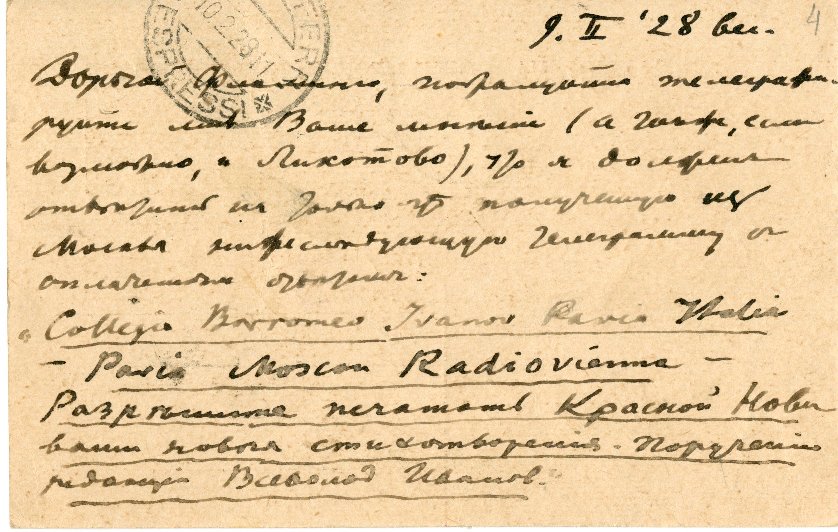 4
9. II '28 веч.
FERR
10.2.28.11
ESPRESSI
Дорогой Фламинго, пожалуйста телеграфи-
руйте мнѣ Ваше мнѣніе (а также, если
возможно, и Ликотово), что я долженъ
отвѣтить на только что полученную изъ
Москвы нижеслѣдующую телеграмму съ
оплаченнымъ отвѣтомъ:
„Collegio Borromeo Ivanov Pavia Italia
– Pavia Moscou Radiovienna –
Разрѣшите печатать Красной Нови
ваши новыя стихотворенія. Порученію
редакціи Всеволод Иванов.